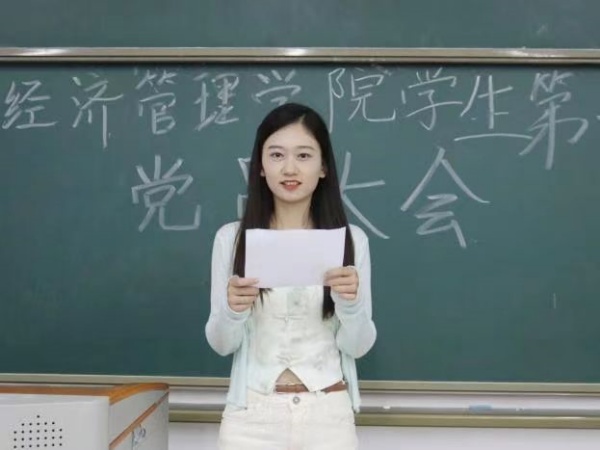 经济管理学院学生第
党员大会